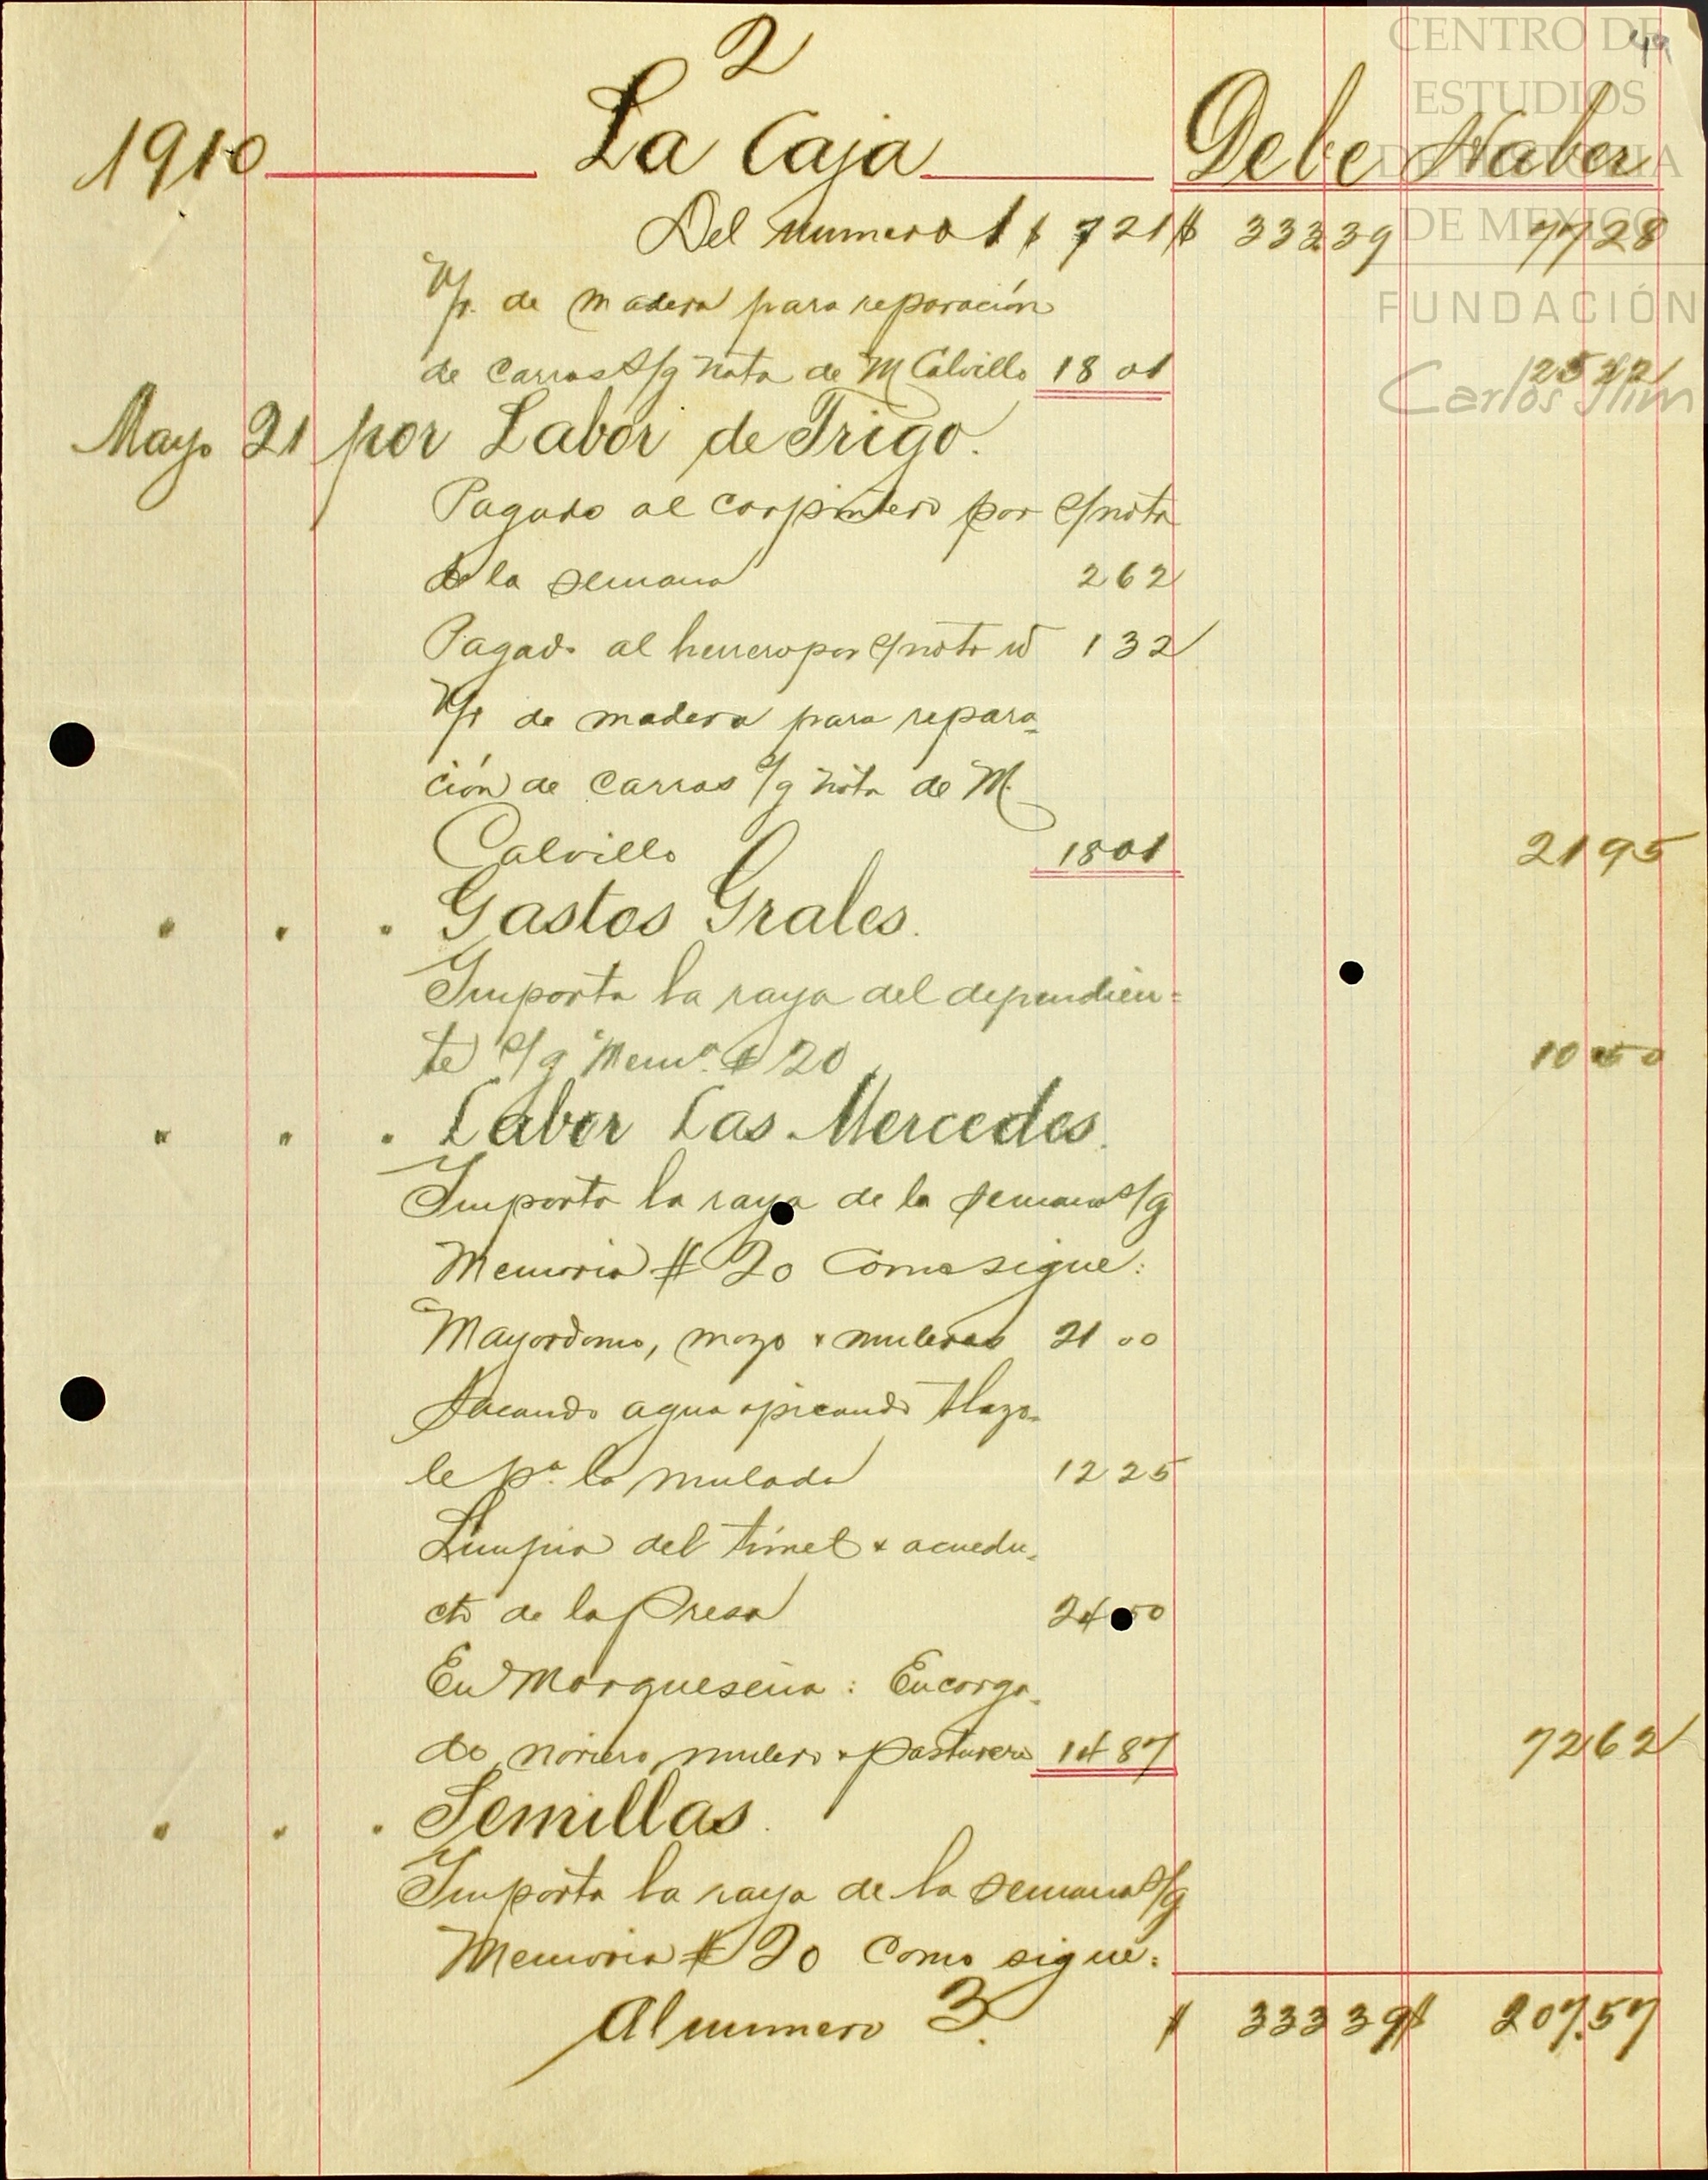 2
49
1910 La Caja Debe Haber
Del numero 1 $ 7 21 $ 333 39 77 28
V/r. de madera para reparación
de carros s/g nota de M Calvillo 18 01 25 22
Mayo 21 por Labor de Trigo.
Pagado al carpintero por s/nota
de la semana 2 62
Pagado al herrero por s/nota id 1 32
V/r de madera para repara-
ción de carros s/g nota de M.
Calvillo 18 01 21 95
" " " Gastos Grales.
Importa la raya del dependien=
te s/g Mema. # 20 10 50
" " " Labor Las Mercedes.
Importa la raya de la semana s/g
Memoria # 20 Como sigue:
Mayordomo, mozo & muleros 21 00
Sacando agua & picando tlazo-
le pa. la mulada 12 25
Limpia del túnel & acuedu-
cto de la Presa 24 50
En Marqueseña: Encarga-
do, noriero, mulero & pasturero 14 87 72 62
" " " Semillas.
Importa la raya de la semana s/g
Memoria # 20 Como sigue:
Al numero 3. $ 333 39 $ 207.57
CENTRO DE
ESTUDIOS
DE HISTORIA
DE MEXICO
FUNDACIÓN
Carlos Slim